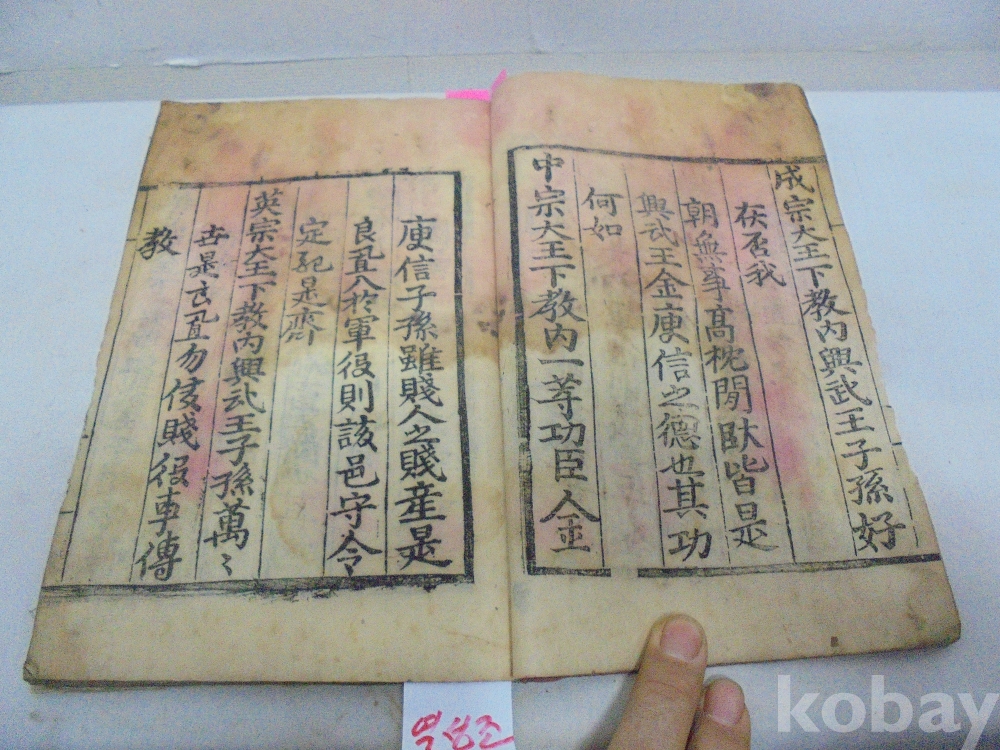 成宗大王下教內興武王子孫好
在否我
朝無事高枕閒臥皆是
興武王金庾信之德也其功
何如
中宗大王下教內一等功臣金
庾信子孫雖賤人之賤産是
良置八於軍役則該邑守令
定配是齊
英宗大王下教內興武王子孫萬〻
世是置勿侵賤役事傳
教
열성조
kobay